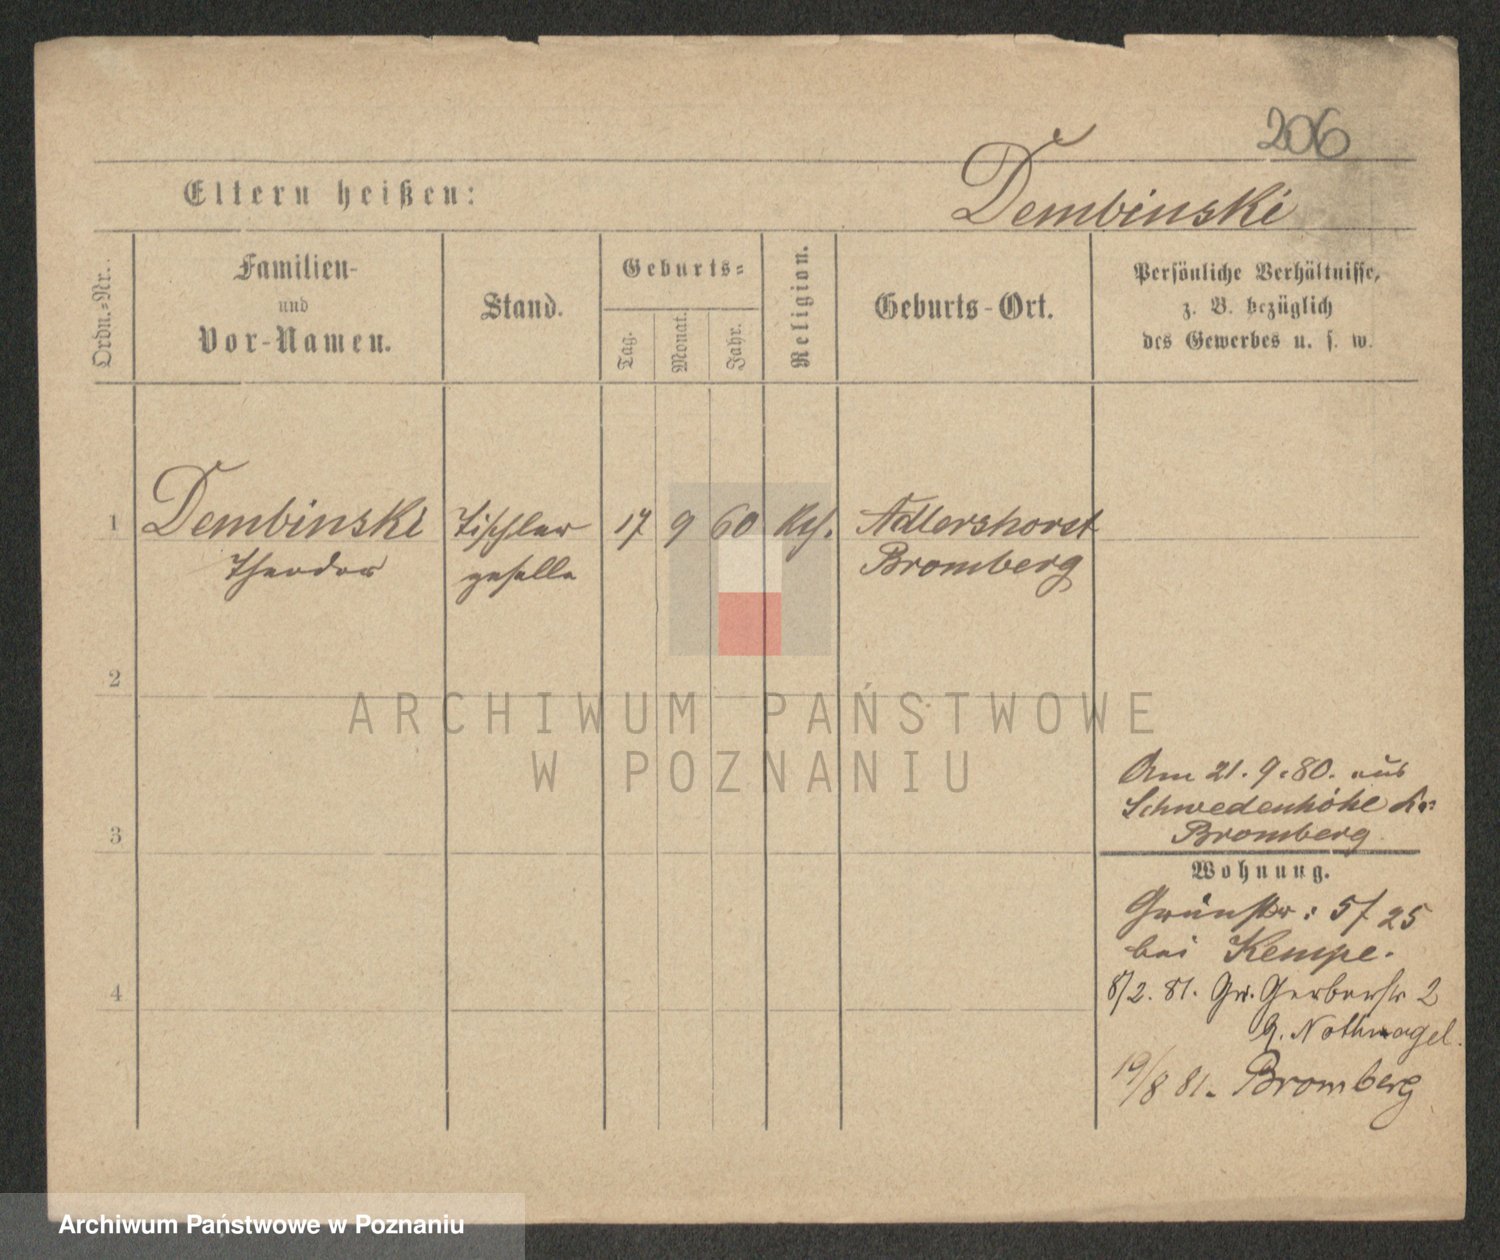 206
Dembinski
Eltern heißen:
Ordn.-Nr.
Familien-
und
Vor-Namen.
Stand.
Geburts-
Tag.
Monat.
Jahr.
Religion.
Geburts-Ort.
Persönliche Verhältnisse,
z. B. bezüglich
des Gewerbes u. s. w.
1
Dembinski
Theodor
Tischler
geselle
17
9
60
Adlershorst
Bromberg
2
3
4
Am 21. 9. 80. aus
Schwedenhöhe
Bromberg
Wohnung.
Grünstr: 5/25
bei Kempe.
8/2. 81. Gr. Gerberstr 2
Nothnagel.
19/8 81. Bromberg
ARCHIWUM PAŃSTWOWE
W POZNANIU
Archiwum Państwowe w Poznaniu